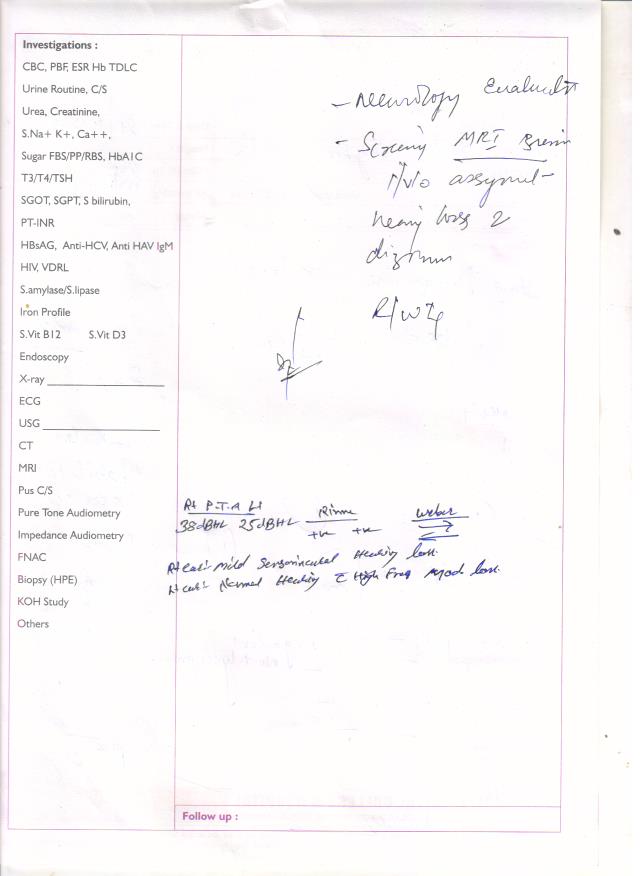 Investigations :
CBC, PBF, ESR Hb TDLC
Urine Routine, C/S
Urea, Creatinine,
S.Na+ K+, Ca++,
Sugar FBS/PP/RBS, HbA1C
T3/T4/TSH
SGOT, SGPT, S bilirubin,
PT-INR
HBsAG, Anti-HCV, Anti HAV IgM
HIV, VDRL
S.amylase/S.lipase
Iron Profile
S.Vit B12 S.Vit D3
Endoscopy
X-ray
ECG
USG
CT
MRI
Pus C/S
Pure Tone Audiometry
Impedance Audiometry
FNAC
Biopsy (HPE)
KOH Study
Others
- Neurology
- MRI Brain
I/v/o
hearing loss
Rt P.T.A Lt Rinne Weber
38dBHL 25dBHL +ve +ve
Rt ear:- Mild Sensorineural Hearing loss.
Lt ear:- Normal Hearing c High Freq Mod. loss.
Follow up :